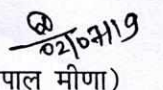 02/07/19
पाल मीणा)